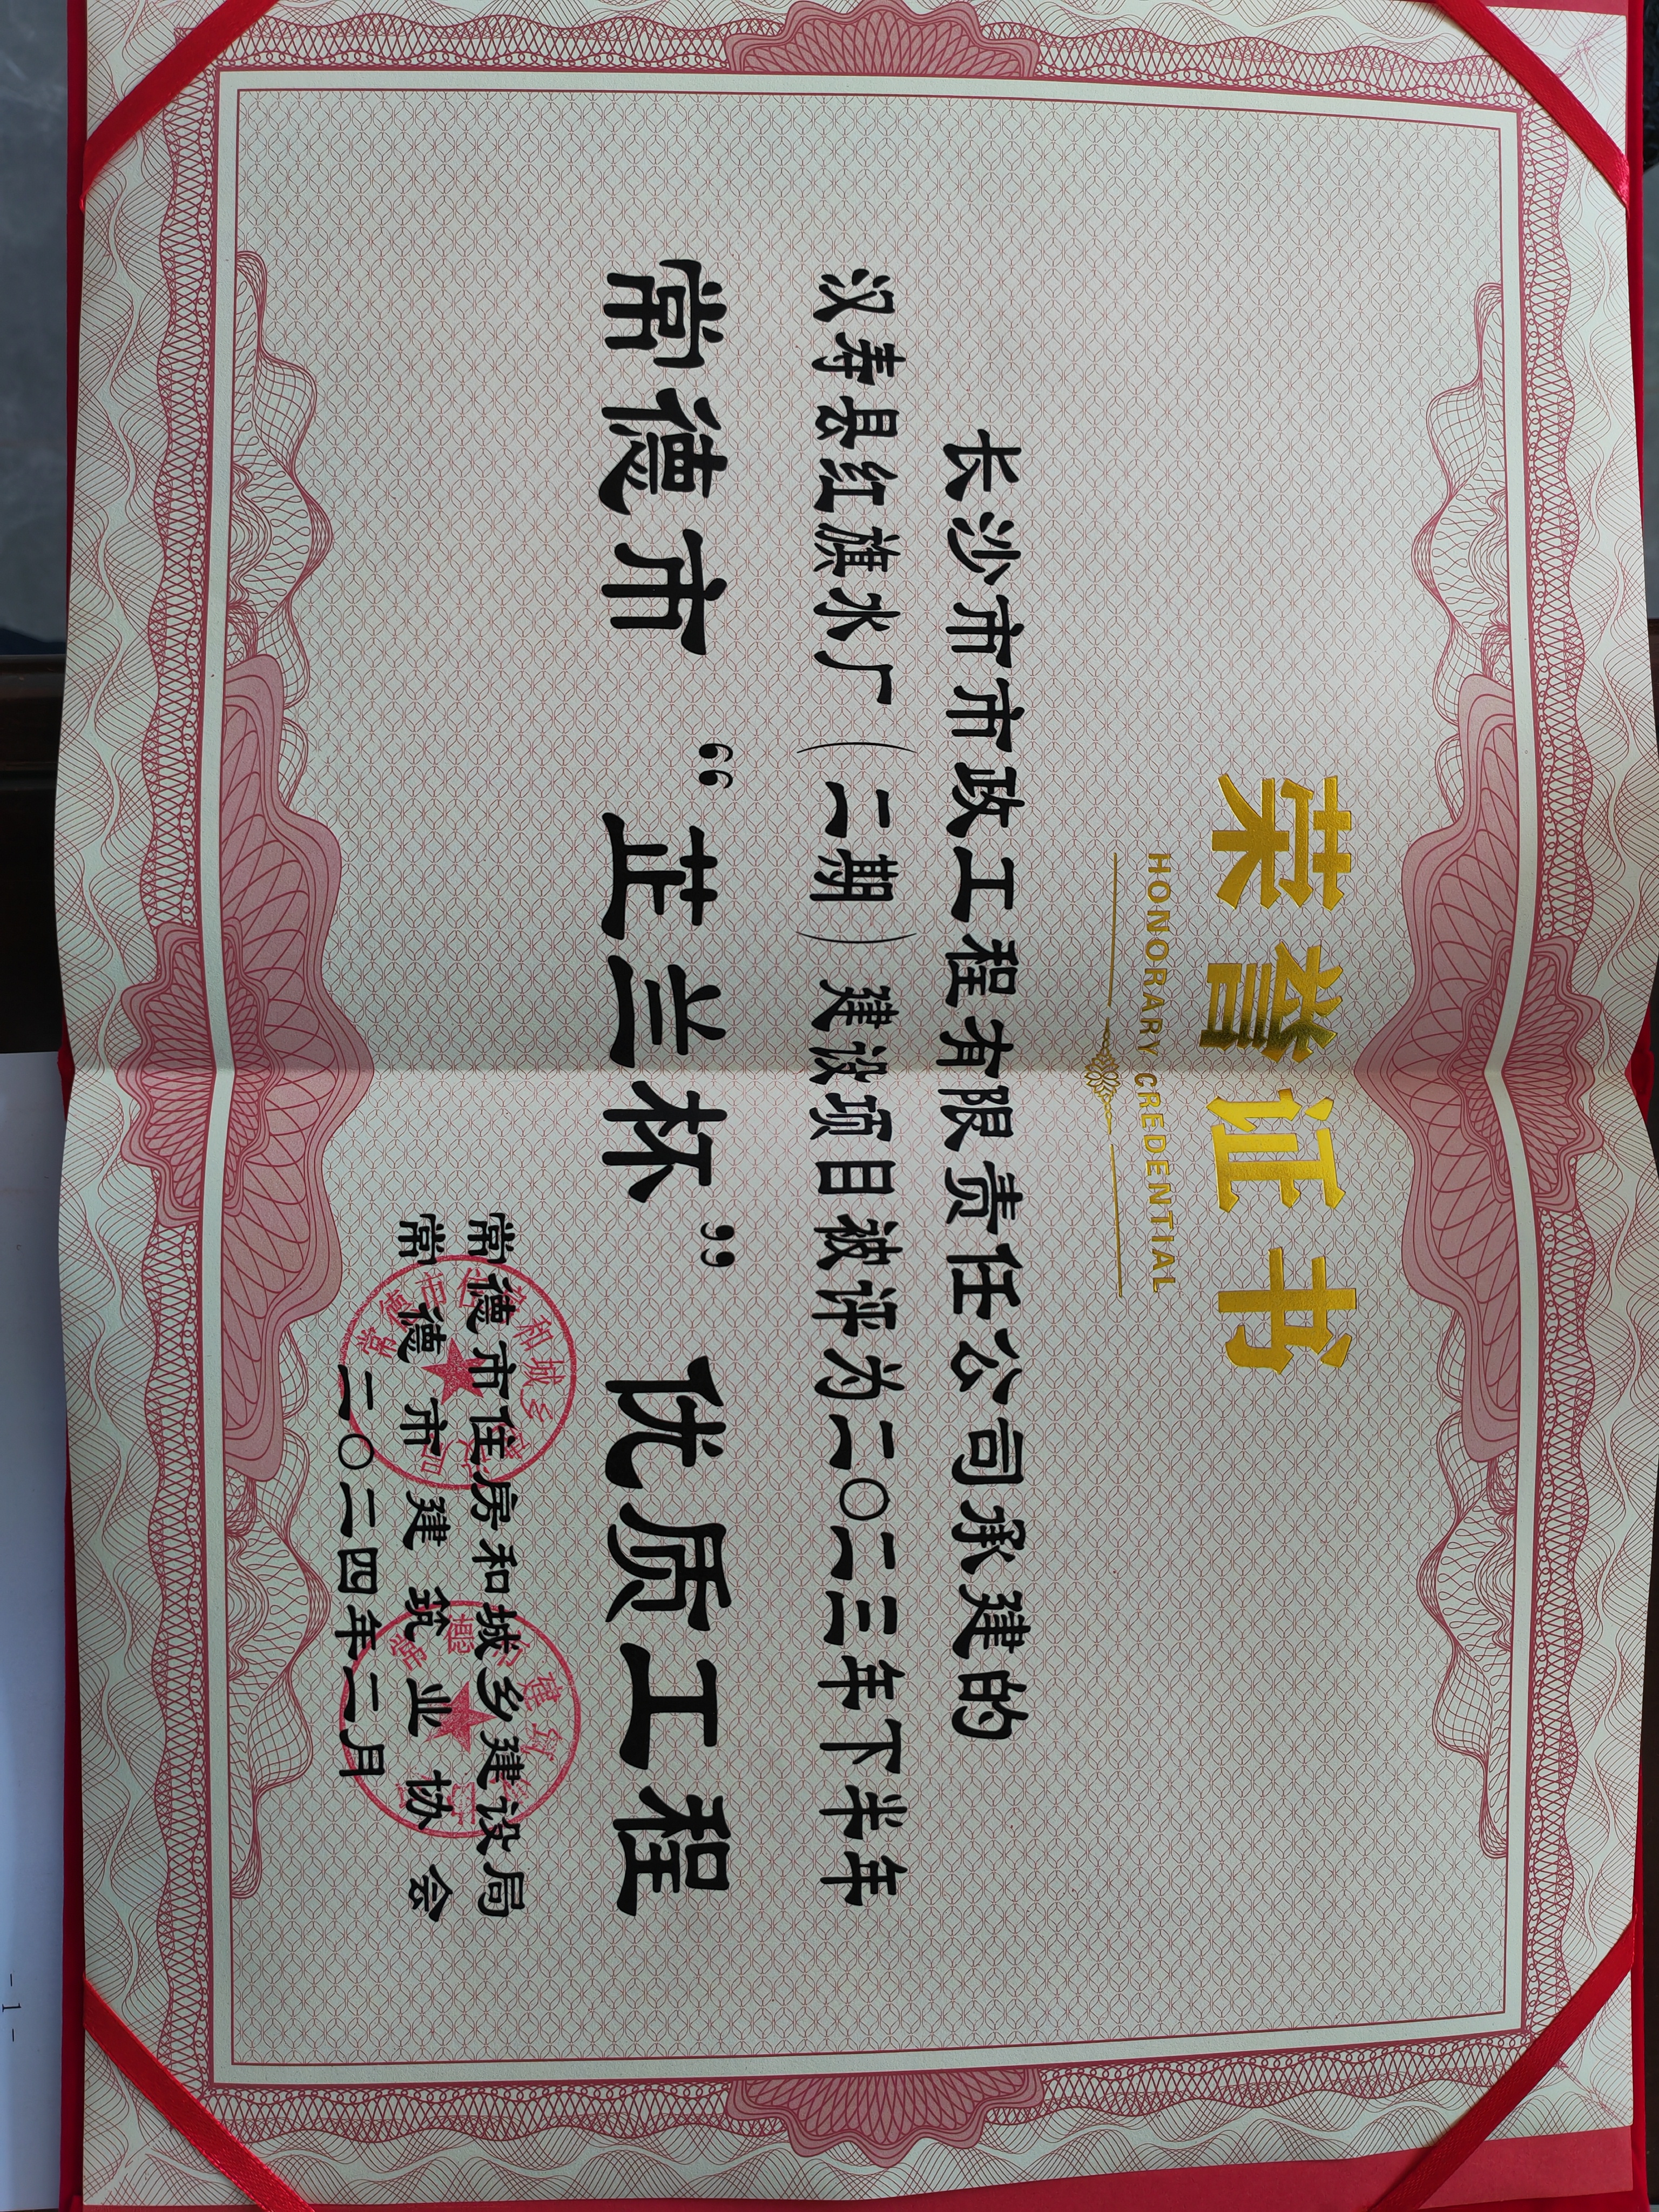 荣誉证书
HONORARY CREDENTIAL
长沙市市政工程有限责任公司承建的
汉寿县红旗水厂（二期）建设项目被评为二〇二三年下半年
常德市“芷兰杯”优质工程
常德市住房和城乡建设局
常德市建筑业协会
二〇二四年二月
- 1 -